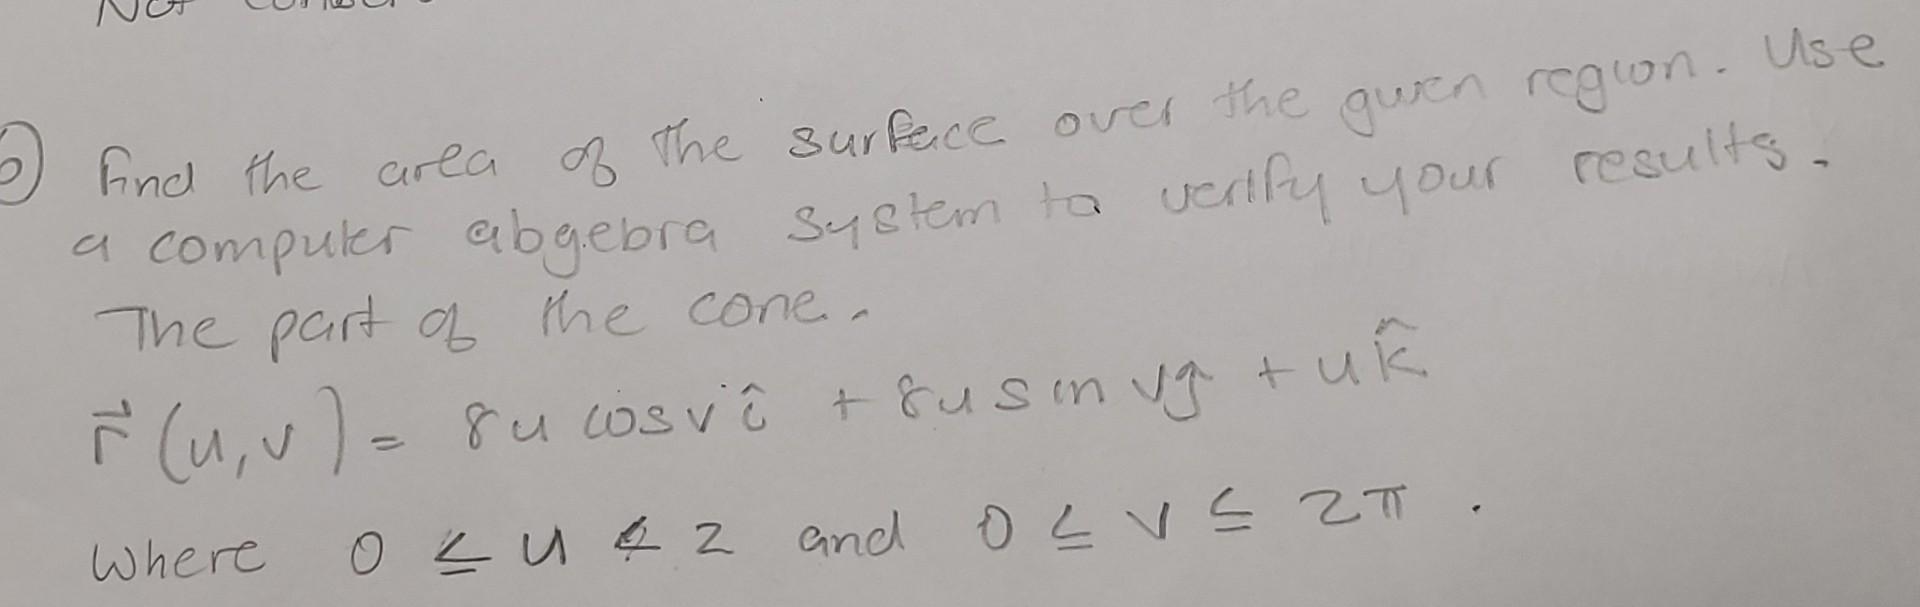 Find the area of the surface over the given region. Use
a computer abgebra system to verify your results.
The part of the cone.
r⃗(u,v) = 8u cosv î + 8u sin v ĵ + u k̂
where 0 ≤ u ≤ 2 and 0 ≤ v ≤ 2π.